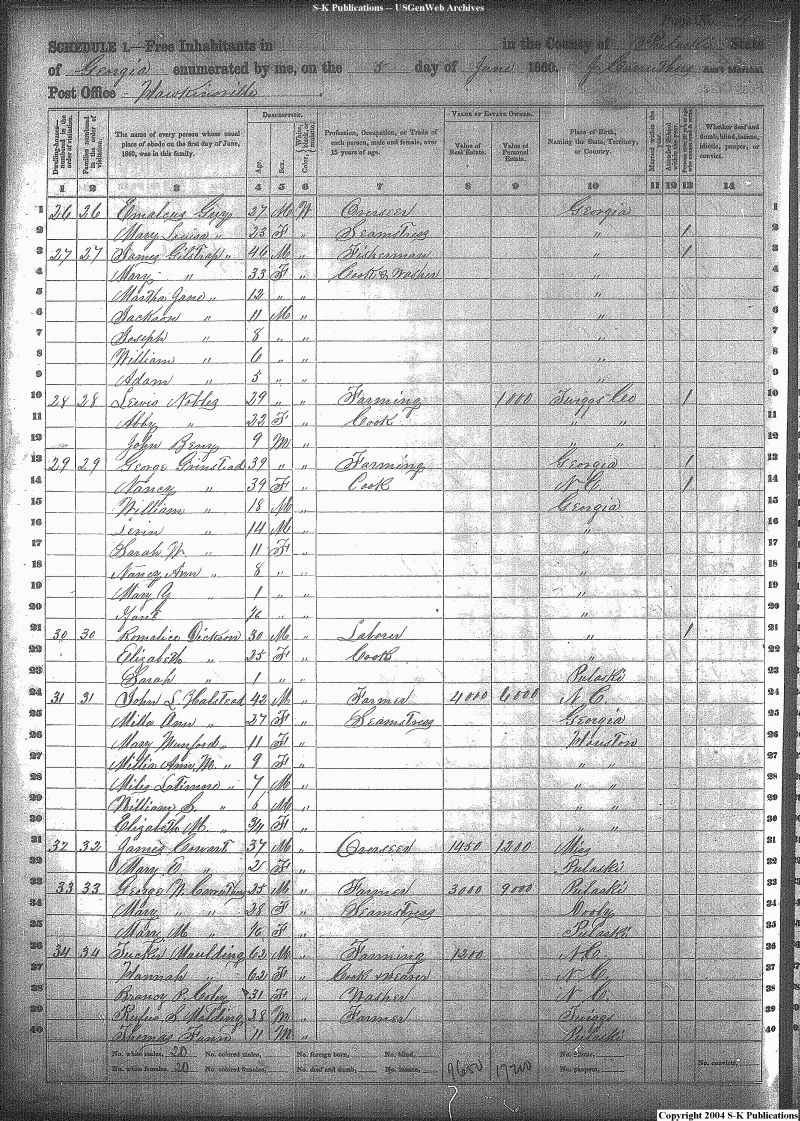 S-K Publications -- USGenWeb Archives
Page No.
SCHEDULE 1.—Free Inhabitants in in the County of Pulaski State
of Georgia enumerated by me, on the 5 day of June 1860. J Carruthers Ass't Marshal
Post Office Hawkinsville
Dwelling-houses—numbered in the order of visitation. Families numbered in the order of visitation. The name of every person whose usual place of abode on the first day of June, 1860, was in this family. DESCRIPTION. Age. Sex. Color, White, black, or mulatto. Profession, Occupation, or Trade of each person, male and female, over 15 years of age. VALUE OF ESTATE OWNED. Value of Real Estate. Value of Personal Estate. Place of Birth, Naming the State, Territory, or Country. Married within the year. Attended School within the year. Whether deaf and dumb, blind, insane, idiotic, pauper, or convict.
1 2 3 4 5 6 7 8 9 10 11 12 13 14
1 26 26 Guy 27 M W Overseer Georgia 1
2 Mary Louisa " 23 F " Seamstress " 1 2
3 27 27 James Gilstrap " 46 M " Fisherman " 1 3
4 Mary " 33 F " Cook & Washer " 4
5 Martha Jane " 12 " " " 5
6 Jackson " 11 M " " 6
7 Joseph " 8 " " " 7
8 William " 6 " " " 8
9 Adam " 5 " " " 9
10 28 28 Lewis Nobles 29 " " Farming 1000 Twiggs Co 1 10
11 Abby " 22 F " Cook " " 11
12 John Berry 9 M " " " 12
13 29 29 George Grinstead 39 " " Farming Georgia 1 13
14 Nancy " 39 F " Cook N C. 1 14
15 William " 18 M " Georgia 15
16 " 14 M " " 16
17 Sarah W " 11 F " " 17
18 Nancy Ann " 8 " " " 18
19 Mary " 1 " " " 19
20 " " " 20
21 30 30 Dickson 30 M " Laborer " 1 21
22 Elizabeth " 25 F " Cook " 22
23 Sarah " 1 " " Pulaski 23
24 31 31 John L Halstead 42 M " Farmer 4000 6,000 N C. 24
25 Ann " 27 F " Seamstress Georgia 25
26 Mary Munford " 11 F " Houston 26
27 Millia Ann M. " 9 F " " 27
28 Miles Latimore " 7 M " " " 28
29 William S. " 6 M " " " 29
30 Elizabeth M. " F " " " 30
31 32 32 James Cowart 37 M " Overseer 1450 1200 Miss 31
32 Mary E " 2 F " Pulaski 32
33 33 33 George W Carruthers 25 M " Farmer 3000 9000 Pulaski 33
34 Mary " " 28 F " Seamstress Dooly 34
35 Mary M " F " Pulaski 35
36 34 34 Maulding 62 M " Farming 1200 N.C. 36
37 Hannah " 62 F " Cook & Weaver N C. 37
38 31 F " Washer N C. 38
39 Rufus S Malding 28 M " Farmer Twiggs 39
40 Thomas 11 M " Pulaski 40
No. white males, 20 No. colored males, No. foreign born, No. blind, 9650 17200 No. idiotic, No. convicts,
No. white females, 20 No. colored females, No. deaf and dumb, No. insane, No. paupers,
Copyright 2004 S-K Publications